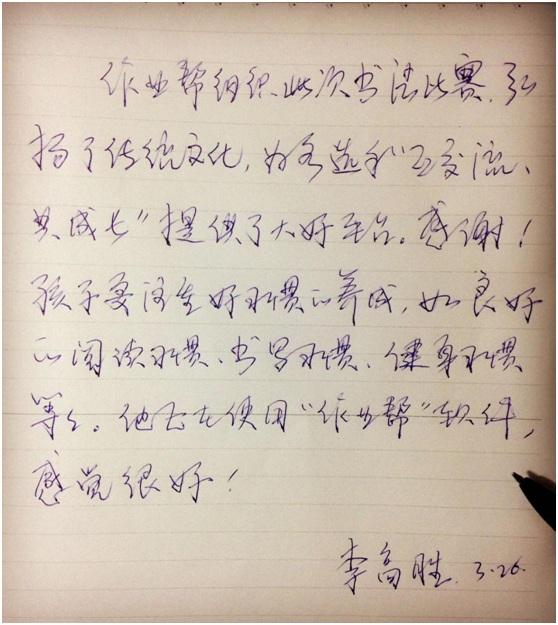 作业帮组织此次书法比赛,弘
扬了传统文化,为各选手“互交流、
共成长”提供了大好平台。感谢!
孩子要注重好习惯的养成,如良好
的阅读习惯、书写习惯、健身习惯
等等。他正在使用“作业帮”软件,
感觉很好!
李高胜 3.26